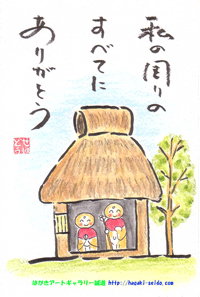 私の周りの
すべてに
ありがとう
はがきアートギャラリー誠道 http://hagaki-seido.com/